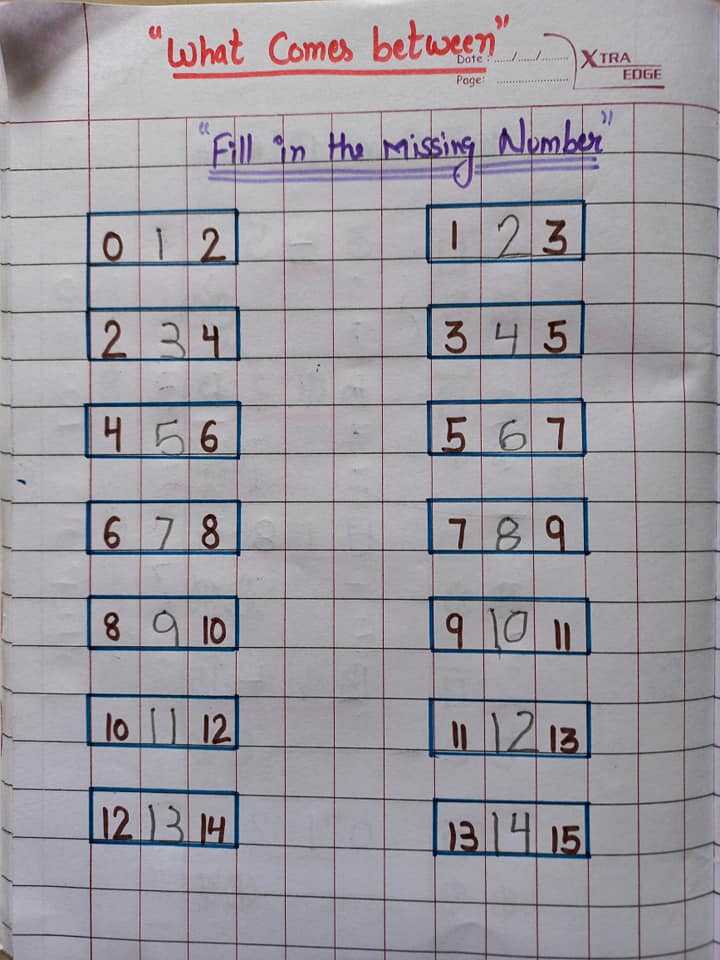 "What Comes between"
Date : ....../....../.........
Page: ........................
XTRA
EDGE
"Fill in the Missing Number"
0 1 2 1 2 3
2 3 4 3 4 5
4 5 6 5 6 7
6 7 8 7 8 9
8 9 10 9 10 11
10 11 12 11 12 13
12 13 14 13 14 15